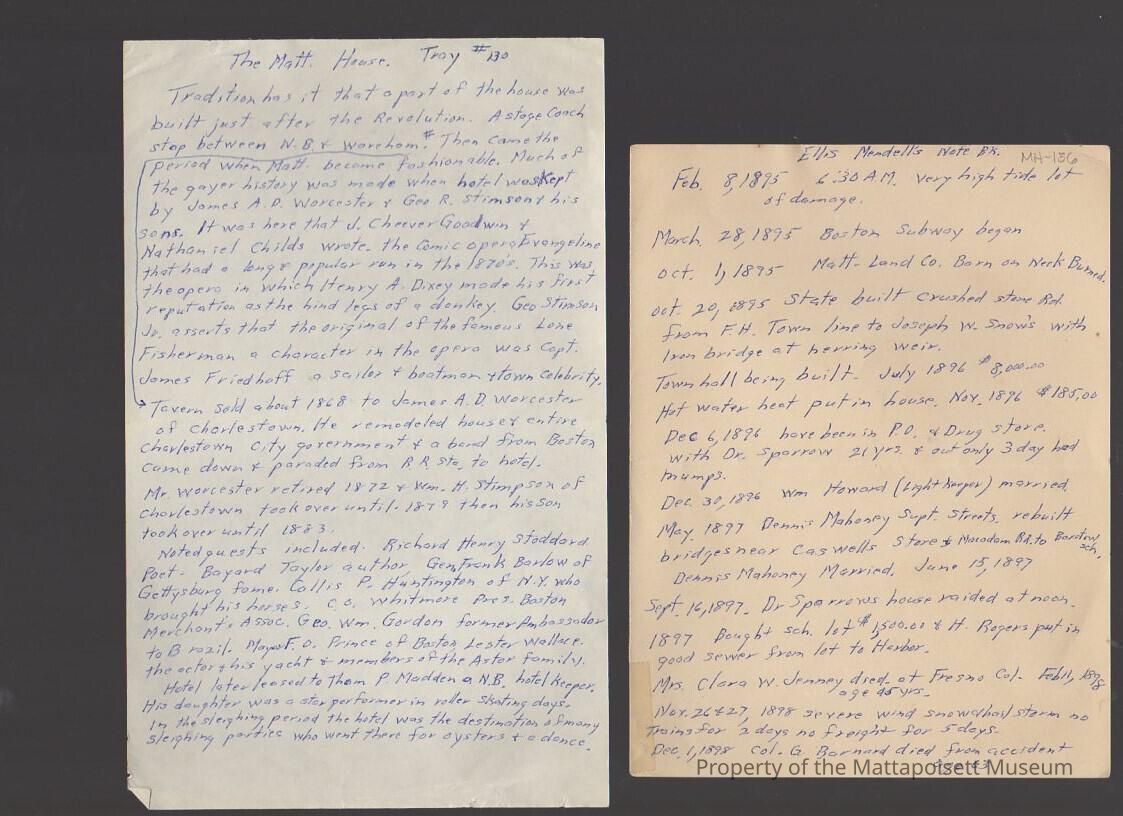 The Matt. House. Tray #130
Tradition has it that a part of the house was
built just after the Revolution. A stage Coach
stop between N.B. & Wareham. # Then came the
period when Matt. became fashionable. Much of
the gayer history was made when hotel was kept
by James A. D. Worcester & Geo R. Stimson & his
sons. It was here that J. Cheever Goodwin &
Nathaniel Childs wrote. the Comic opera Evangeline
that had a long & popular run in the 1870's. This was
the opera in which Henry A. Dixey made his first
reputation as the hind legs of a donkey. Geo Stimson
Jr. asserts that the original of the famous Lone
Fisherman a character in the opera was Capt.
James Friedhoff a sailor & boatman & town celebrity.
Tavern sold about 1868 to James A. D. Worcester
of Charlestown. He remodeled house & entire
Charlestown City government & a band from Boston
came down & paraded from R.R. Sta. to hotel.
Mr. Worcester retired 1872 & Wm. H. Stimpson of
Charlestown took over until. 1879 then his son
took over until 1883.
Noted guests included. Richard Henry Stoddard
Poet. Bayard Taylor author, Gen. Frank Barlow of
Gettysburg fame. Collis P. Huntington of N.Y. who
brought his horses. C. O. Whitmore Pres. Boston
Merchant's Assoc. Geo. Wm. Gordon former Ambassador
to Brazil. Mayor F. O. Prince of Boston, Lester Wallace.
the actor & his yacht & members of the Astor family.
Hotel later leased to Thom P. Madden a N.B. hotel keeper.
His daughter was a star performer in roller skating days.
In the sleighing period the hotel was the destination of many
sleighing parties who went there for oysters & a dance.
Ellis Mendell's Note Bk.
MH-136
Feb. 8, 1895 6:30 A.M. very high tide lot
of damage.
March. 28, 1895 Boston Subway began
Oct. 1, 1895 Matt. Land Co. Barn on Neck Burned.
Oct. 20, 1895 State built crushed stone Rd.
from F.H. Town line to Joseph W. Snow's with
Iron bridge at herring weir.
Town hall being built. July 1896 $8,000.00
Hot water heat put in house. Nov. 1896 $185.00
Dec 6, 1896 have been in P.O. & Drug store.
with Dr. Sparrow 21 yrs. & out only 3 day had
mumps.
Dec. 30, 1896 Wm Howard (Light Keeper) married
May. 1897 Dennis Mahoney Supt. Streets, rebuilt
bridges near Caswells Store & Macadam Rd. to Barstow
sch.
Dennis Mahoney Married. June 15, 1897
Sept. 16, 1897. Dr Sparrows house raided at noon.
1897 Bought sch. lot $1,500.00 & H. Rogers put in
good sewer from lot to Harbor.
Mrs. Clara W. Jenney died. at Fresno Col. Feb 11, 1898
age 45 yrs.
Nov. 26 & 27, 1898 severe wind snow & hail storm no
trains for 2 days no freight for 5 days.
Dec. 1, 1898 Col. G Barnard died from accident
Property of the Mattapoisett Museum